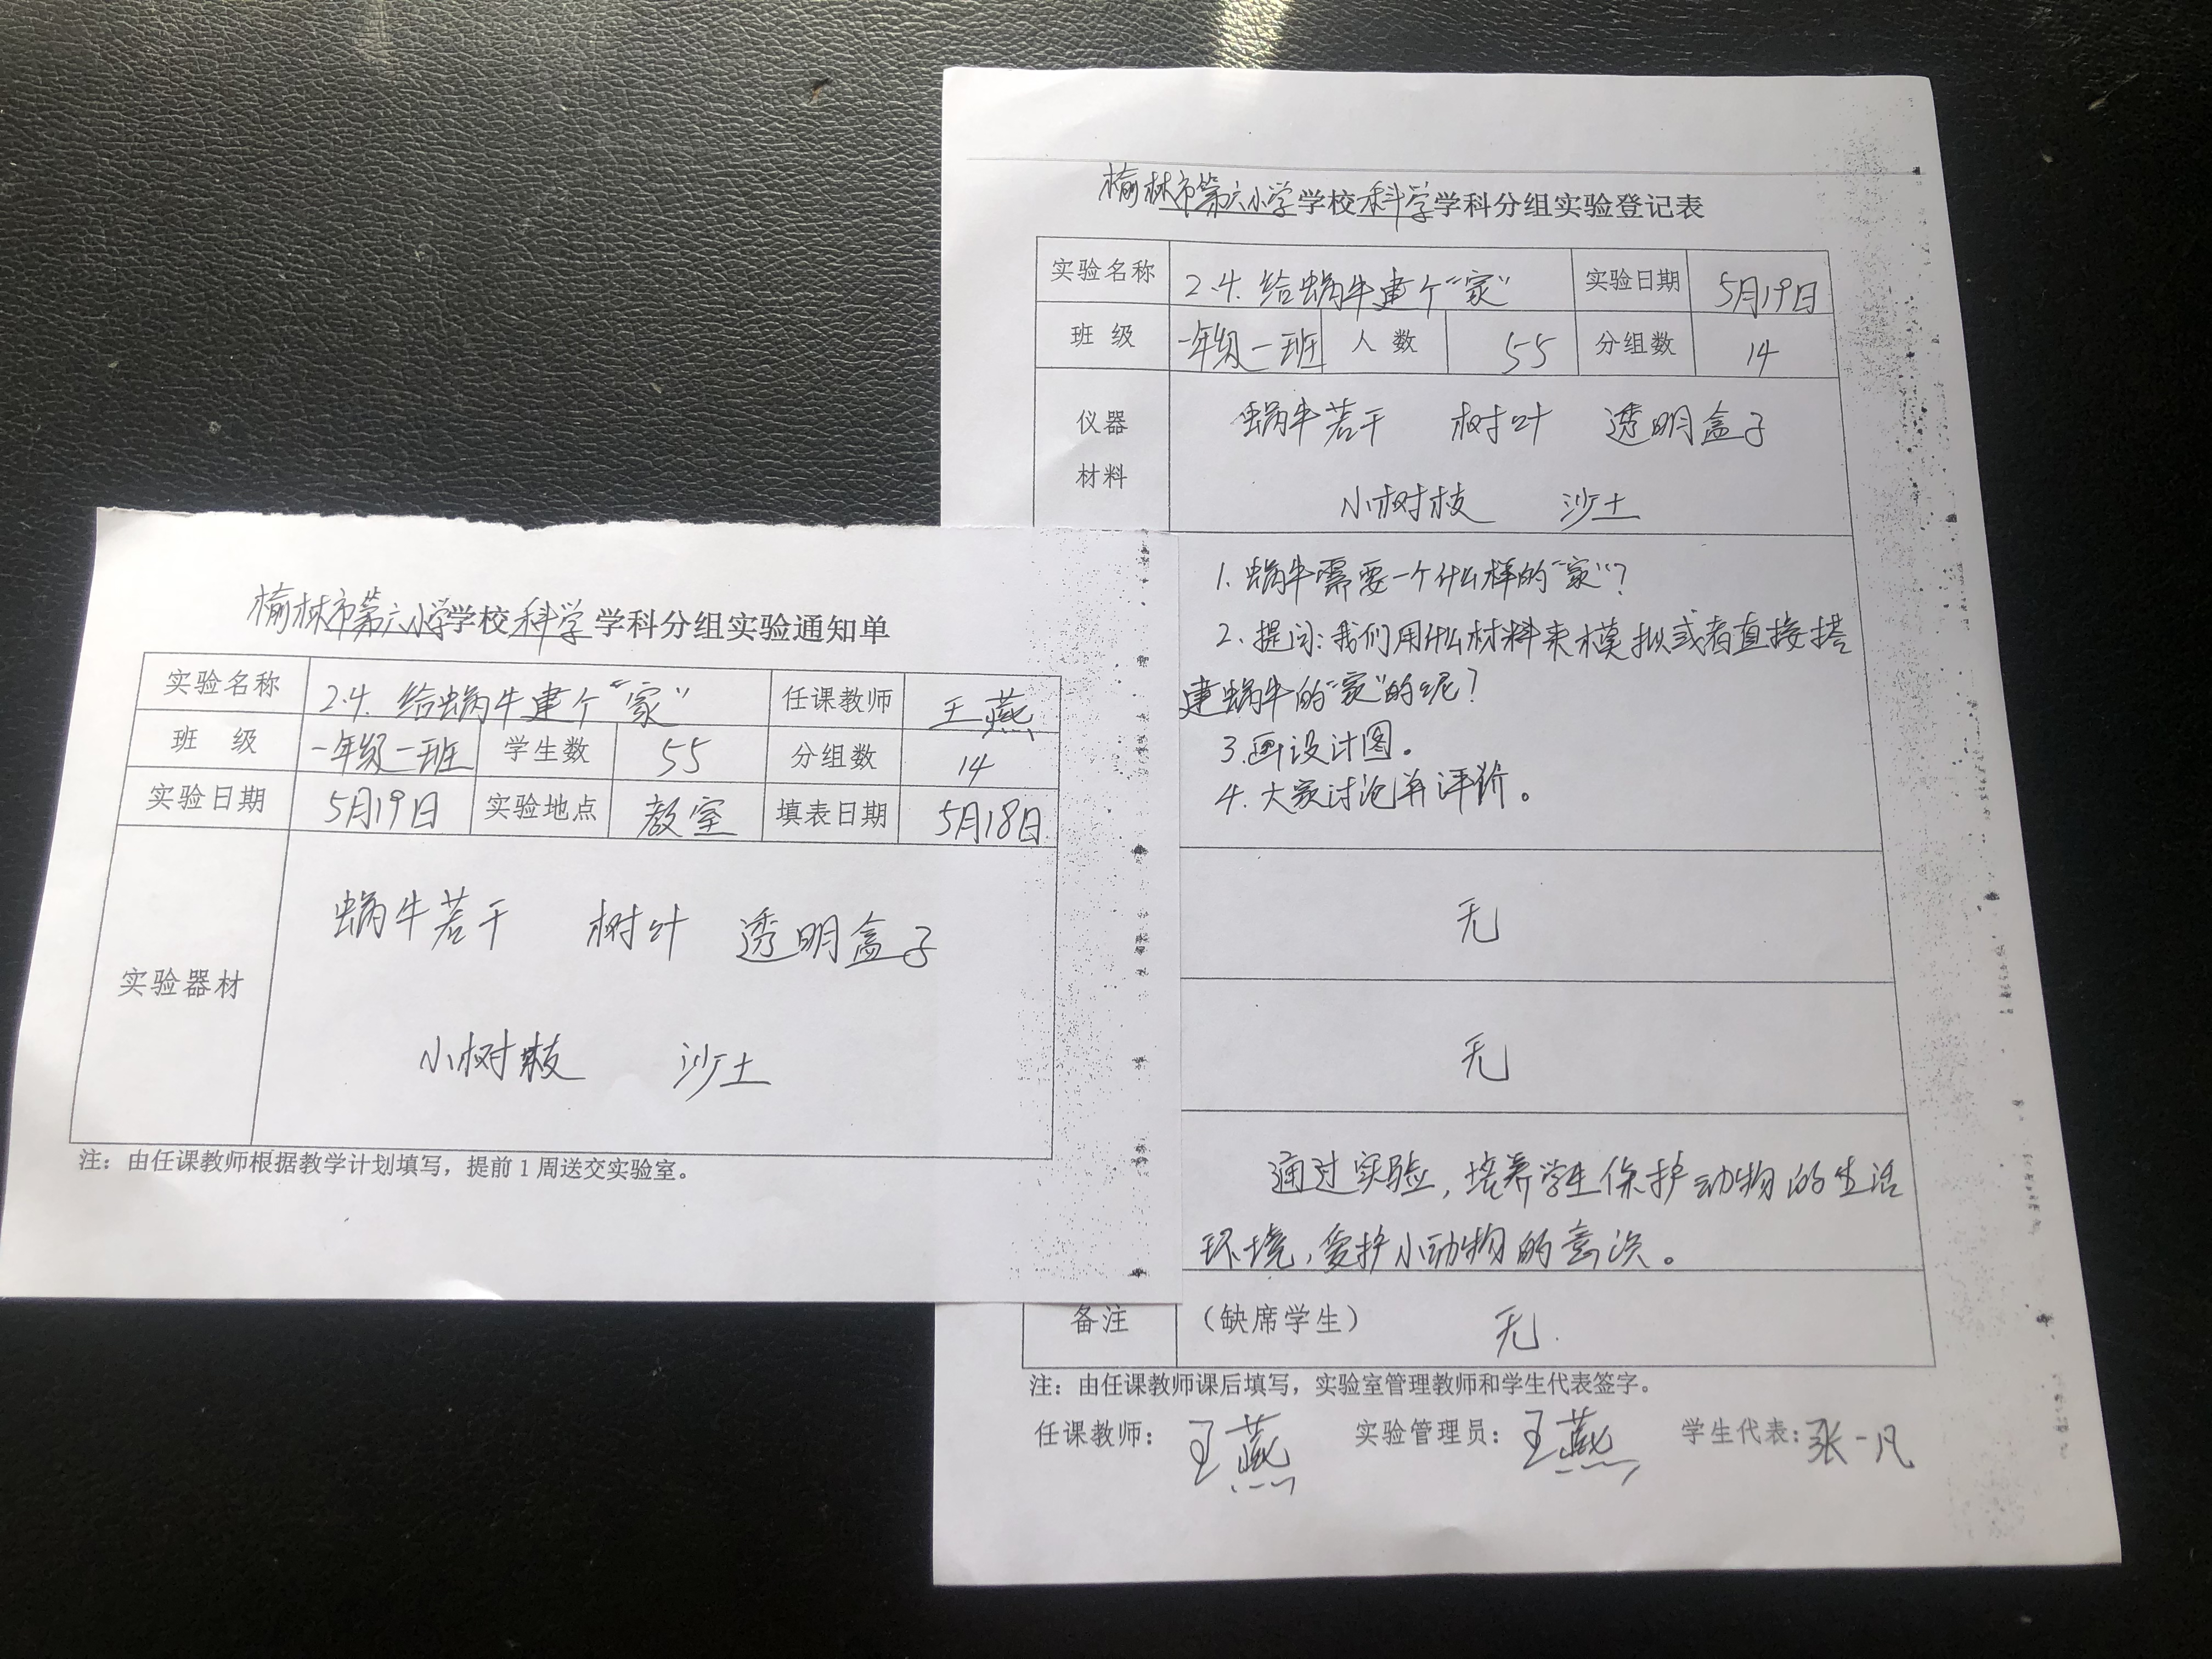 榆林市第六小学学校科学学科分组实验通知单
实验名称 2.4.给蜗牛建个“家” 任课教师 王燕
班 级 一年级一班 学生数 55 分组数 14
实验日期 5月19日 实验地点 教室 填表日期 5月18日
实验器材
蜗牛若干 树叶 透明盒子
小树枝 沙土
注：由任课教师根据教学计划填写，提前1周送交实验室。
榆林市第六小学学校科学学科分组实验登记表
实验名称 2.4.给蜗牛建个“家” 实验日期 5月19日
班 级 一年级一班 人 数 55 分组数 14
仪器
材料
蜗牛若干 树叶 透明盒子
小树枝 沙土
1.蜗牛需要一个什么样的“家”？
2.提问：我们用什么材料来模拟或者直接搭
建蜗牛的“家”的呢？
3.画设计图。
4.大家讨论并评价。
无
无
通过实验，培养学生保护动物的生活
环境，爱护小动物的意识。
备注 （缺席学生） 无.
注：由任课教师课后填写，实验室管理教师和学生代表签字。
任课教师：王燕 实验管理员：王燕 学生代表：张一凡